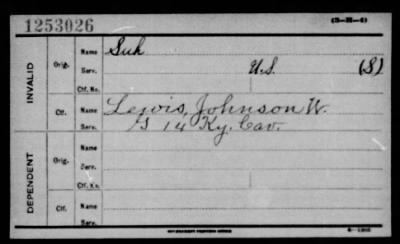 1253026 (3-H-4)
INVALID
Orig.
Name Suh
Serv. U.S. (S)
Ctf. No.
Ctf.
Name Lewis, Johnson W.
Serv. 14 Ky. Cav.
DEPENDENT
Orig.
Name
Serv.
Ctf. No.
Ctf.
Name
Serv.